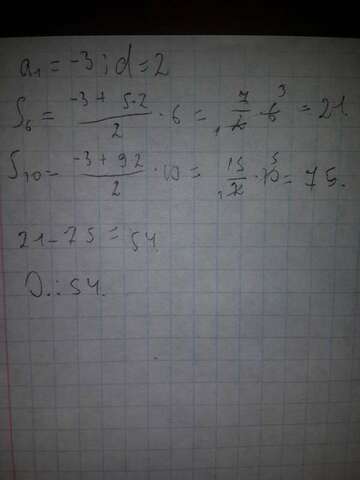 a₁ = -3; d = 2
S₆ = (-3 + 5·2)/2 · 6 = 7/2 · 6 3 = 21
S₁₀ = (-3 + 9·2)/2 · 10 = 15/2 · 10 5 = 75.
21 - 75 = 54
О.: 54.